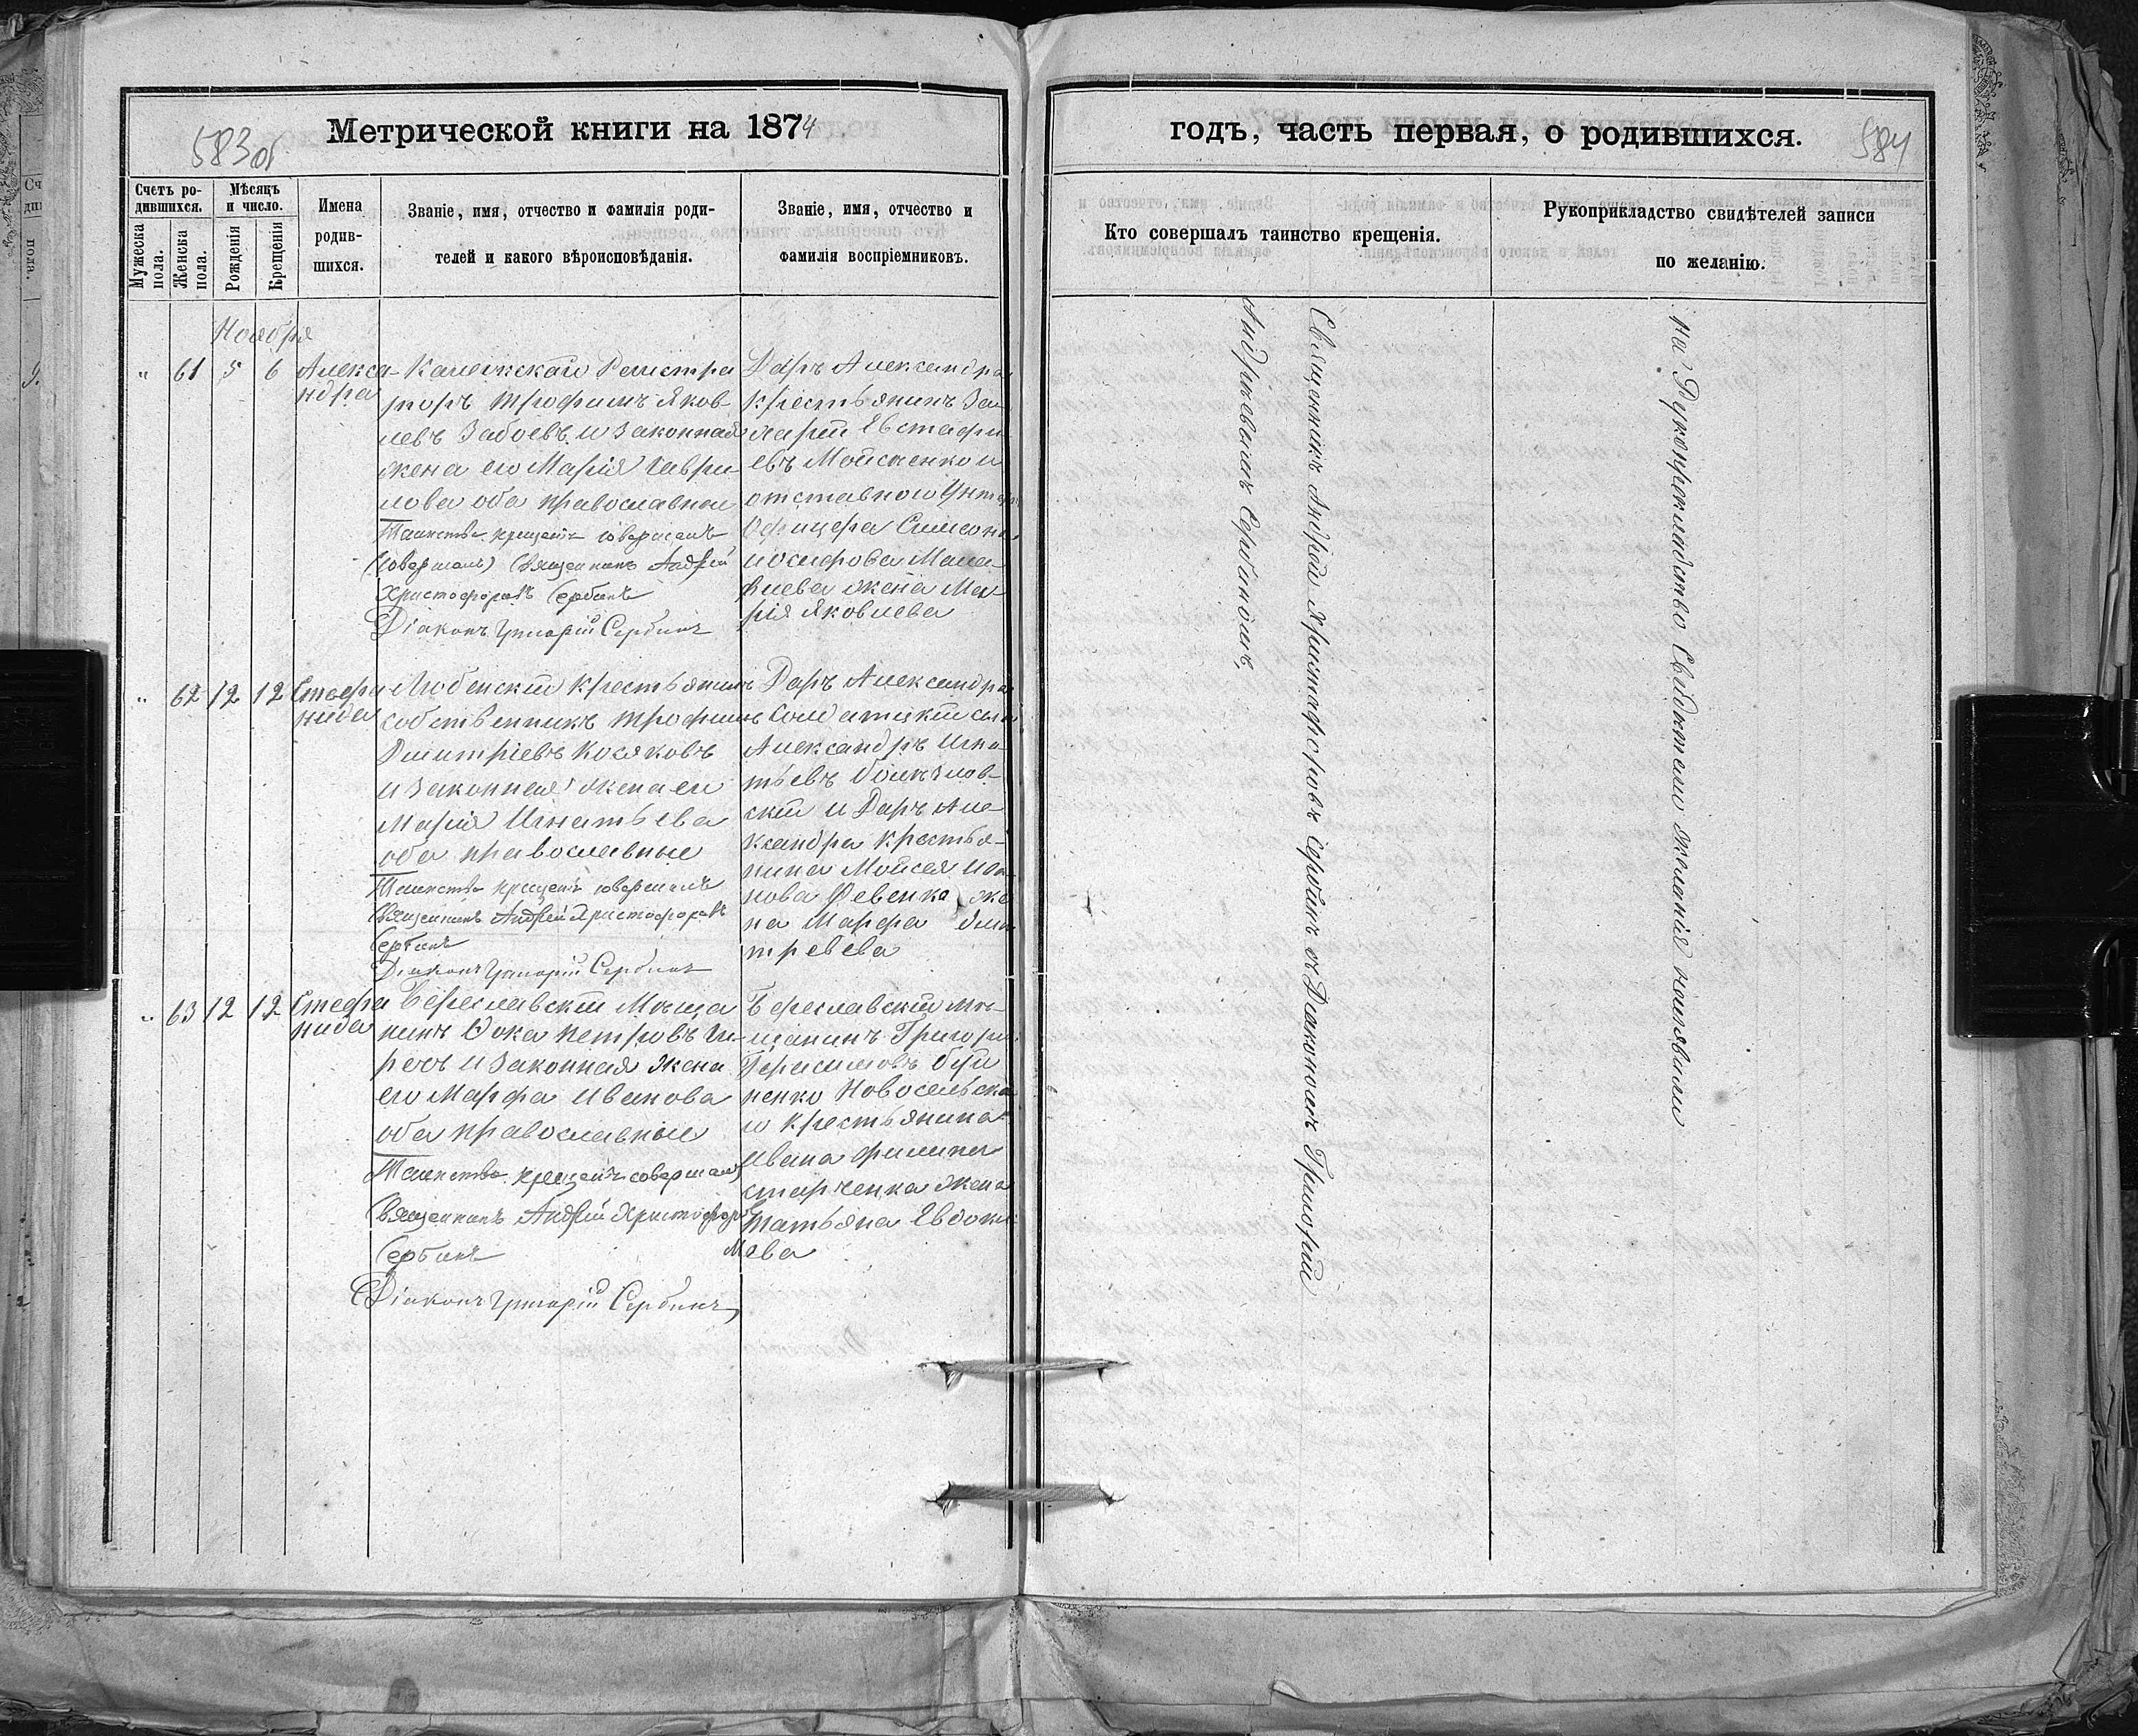 583 об
Метрической книги на 1874
Счетъ ро-
дившихся.
Мужеска
пола.
Женска
пола.
Мѣсяцъ
и число.
Рожденія
Крещенія
Имена
родив-
шихся.
Званіе, имя, отчество и фамилія роди-
телей и какого вѣроисповѣданія.
Званіе, имя, отчество и
фамилія воспріемниковъ.
Ноября
" 61 5 6
Алекса-
ндра
Регистра
торъ Трофимъ Яков-
левъ Забоевъ и законная
жена его Марія Гаври-
лова оба православные
Таинство крещенія совершалъ
(совершалъ) Священникъ Андрей
Христофоровъ Сербинъ
Діаконъ Григорій Сербинъ
Даръ Александра
крестьянинъ
Евстафи-
евъ Мойсѣенко и
отставного Унтеръ
Офицера Симеона
Іосифова
жена Ма-
рія Яковлева
" 62 12 12
Стефа
нида
Любенскій крестьянинъ
собственникъ Трофимъ
Дмитріевъ Косяковъ
и законная жена его
Марія Игнатьева
оба православные
Таинство крещенія совершалъ
Священникъ Андрей Христофоровъ
Сербинъ
Діаконъ Григорій Сербинъ
Даръ Александра
Солдатскій сынъ
Александръ Игна-
тьевъ
скій и Даръ Але-
ксандра Крестья-
нина Мойсея Ива-
нова Февенка же
на Марфа Дми
тревева
" 63 12 12
Стефа
нида
Береславскій Мѣща
нинъ Фока Петровъ
и законная жена
его Марфа Иванова
оба православные
Таинство крещенія совершалъ
Священникъ Андрей Христофоровъ
Сербинъ
Діаконъ Григорій Сербинъ
Береславскій мѣ-
щанинъ Григорій
Герасимовъ
Новосельска
го Крестьянина
Ивана Филипа
старченка жена
Татьяна Евдоки
мова
годъ, часть первая, о родившихся.
584
Кто совершалъ таинство крещенія.
Рукоприкладство свидѣтелей записи
по желанію.
Священникъ Андрей Христофоровъ Сербинъ съ Діакономъ Григорій
Андріевымъ Сербиномъ.
На Рукоприкладство Свидѣтели желанія неизявили